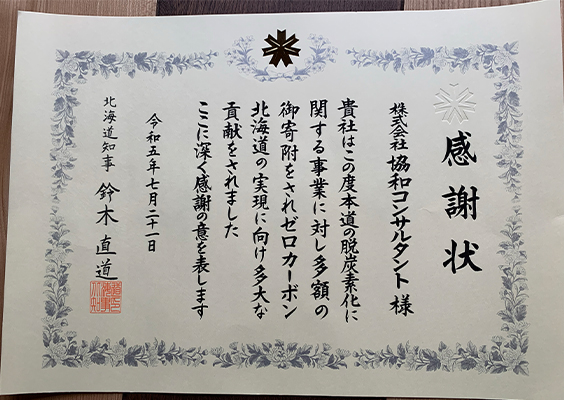 感謝状
株式会社 協和コンサルタント 様
貴社はこの度本道の脱炭素化に
関する事業に対し多額の
御寄附をされゼロカーボン
北海道の実現に向け多大な
貢献をされました
ここに深く感謝の意を表します
令和五年七月二十一日
北海道知事 鈴木直道